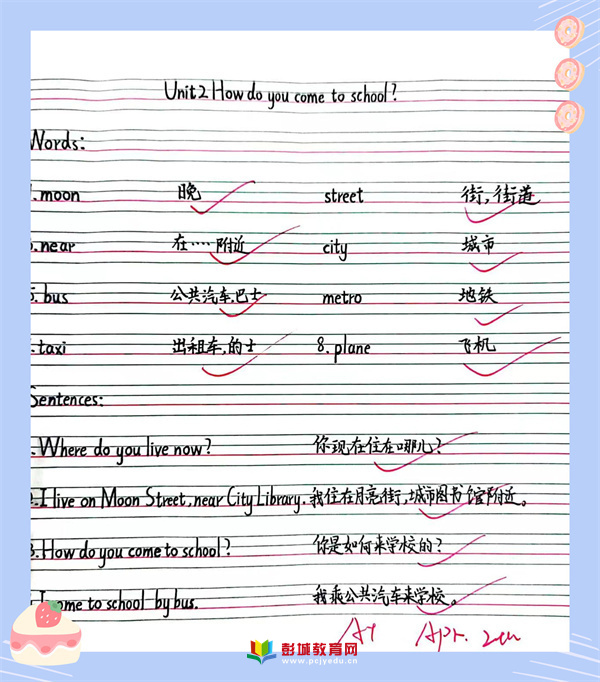 Unit2 How do you come to school?
Words:
.moon 晚 street 街,街道
.near 在····附近 city 城市
. bus 公共汽车,巴士 metro 地铁
.taxi 出租车,的士 8. plane 飞机
Sentences:
.Where do you live now? 你现在住在哪儿?
.I live on Moon Street, near City Library. 我住在月亮街,城市图书馆附近。
.How do you come to school? 你是如何来学校的?
I come to school by bus. 我乘公共汽车来学校。
A+ Apr.
彭城教育网
www.pcjyedu.cn